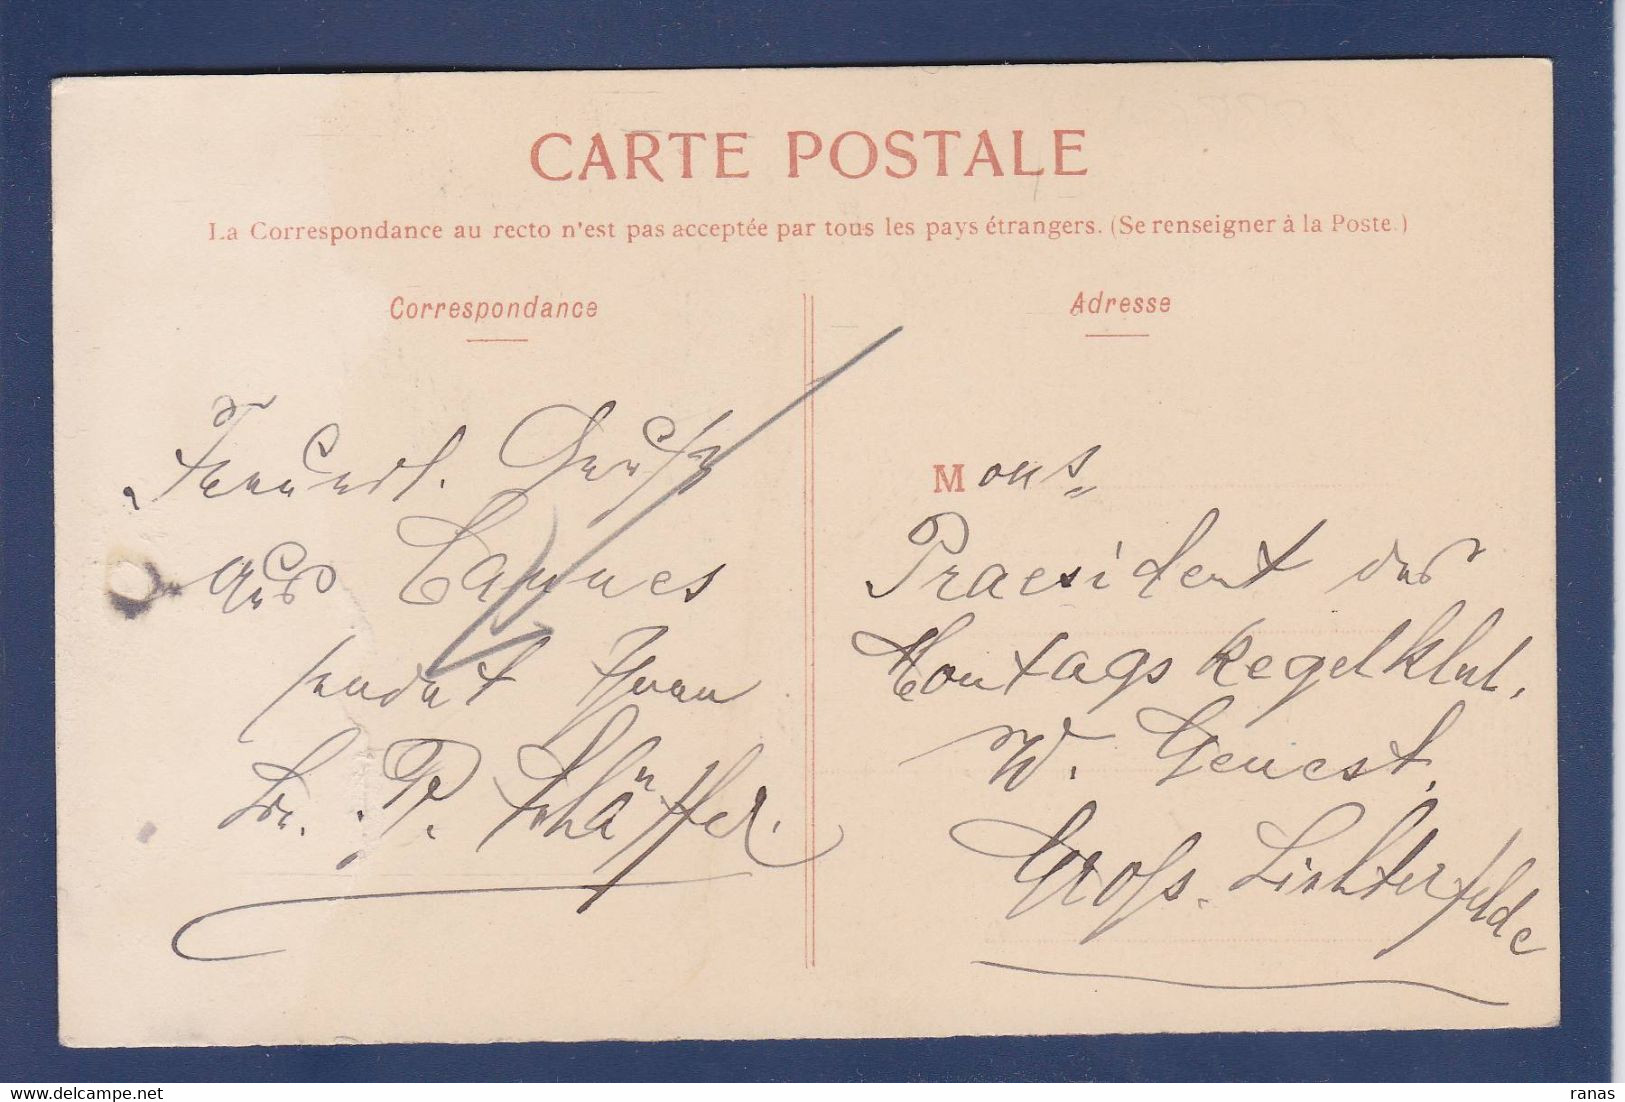 CARTE POSTALE
La Correspondance au recto n'est pas acceptée par tous les pays étrangers. (Se renseigner à la Poste.)
Correspondance
Freundl. Gruß
aus Cannes
sendet Ihnen
P. Schäffer.
Adresse
Mons
Praesident des
Montags Kegelklub.
W. Genest.
Gross. Lichterfelde
ranas